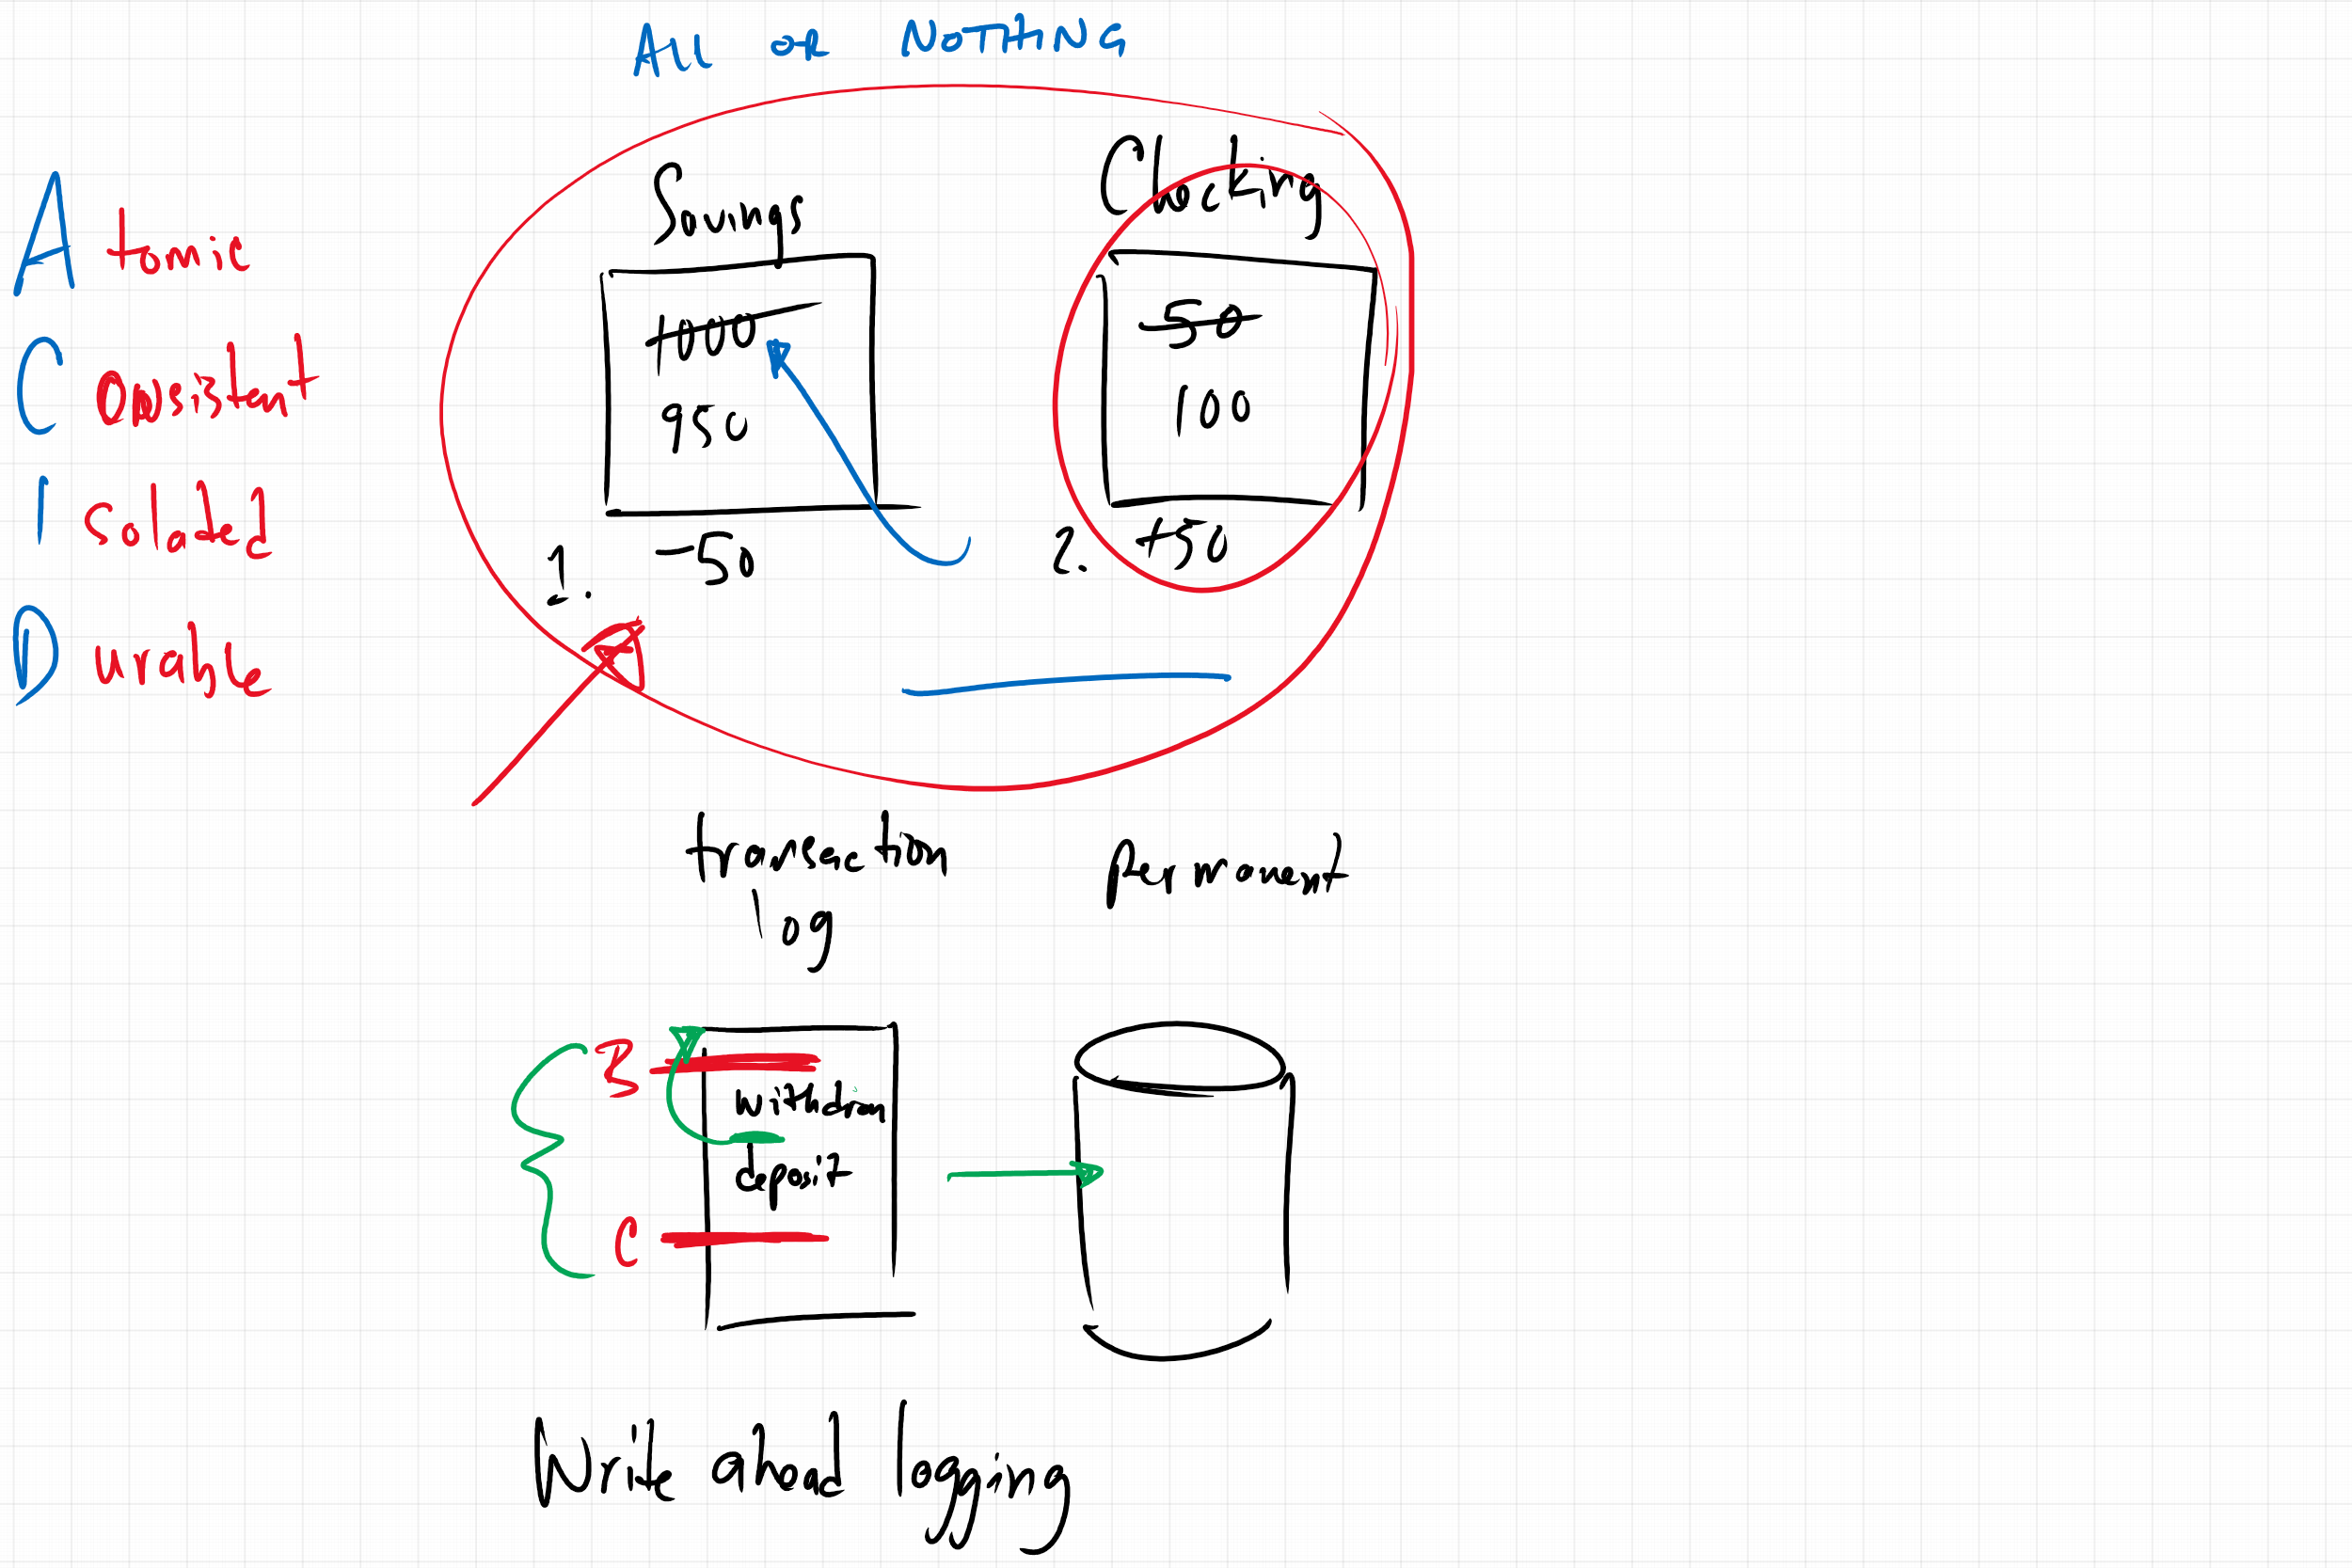 All or Nothing
Atomic
Consistent
Isolated
Durable
Savings
Checking
1000
950
50
100
1. -50
2. +50
transaction
log
permanent
B
withdraw
deposit
C
Write ahead logging